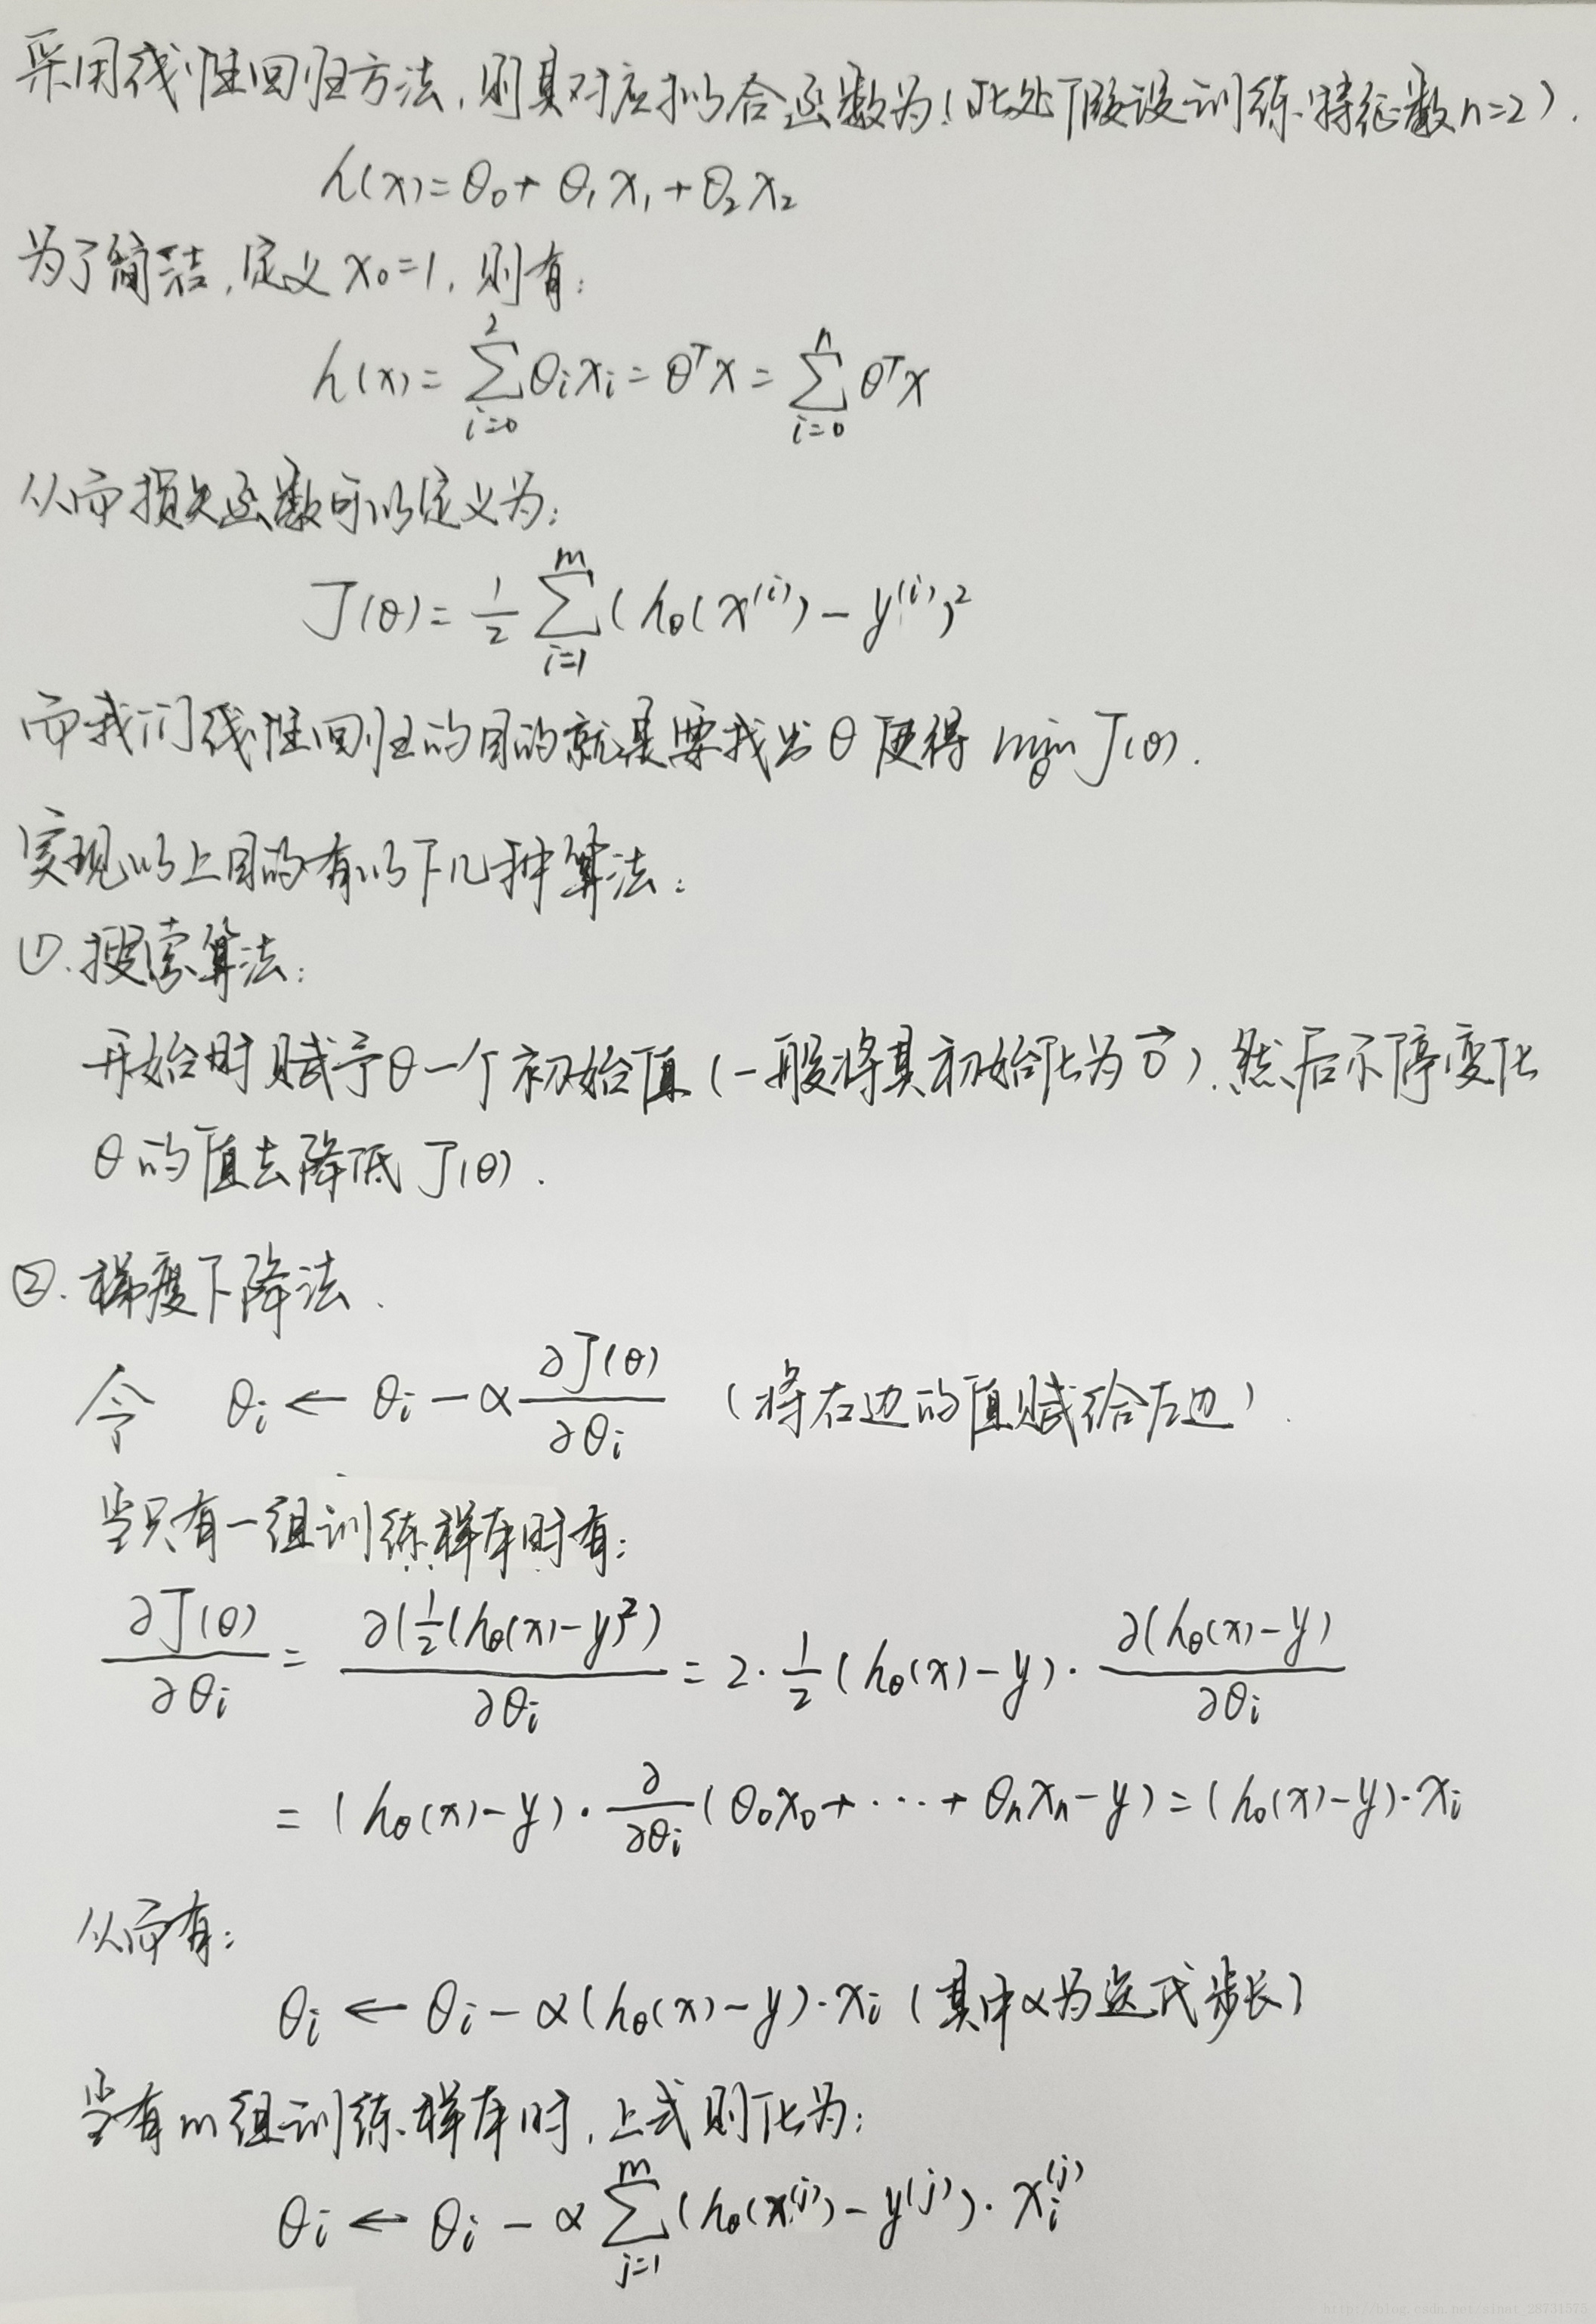 采用线性回归方法,则其对应拟合函数为(此处假设训练特征数n=2).
h(x)=θ₀+θ₁x₁+θ₂x₂
为了简洁,定义x₀=1,则有:
h(x)=∑_{i=0}^{2}θᵢxᵢ=θᵀx=∑_{i=0}^{n}θᵀx
从而损失函数可以定义为:
J(θ)=½∑_{i=1}^{m}(h_θ(x⁽ⁱ⁾)-y⁽ⁱ⁾)²
而我们线性回归的目的就是要找出θ使得 min_θ J(θ).
实现以上目的有以下几种算法:
①.搜索算法:
开始时赋予θ一个初始值(一般将其初始化为0⃗).然后不停变化
θ的值去降低J(θ).
②.梯度下降法.
令 θᵢ←θᵢ-α ∂J(θ)/∂θᵢ (将右边的值赋给左边).
当只有一组训练样本时有:
∂J(θ)/∂θᵢ = ∂(½(h_θ(x)-y)²)/∂θᵢ = 2·½(h_θ(x)-y)·∂(h_θ(x)-y)/∂θᵢ
=(h_θ(x)-y)·∂/∂θᵢ(θ₀x₀+···+θₙxₙ-y)=(h_θ(x)-y)·xᵢ
从而有:
θᵢ←θᵢ-α(h_θ(x)-y)·xᵢ(其中α为迭代步长)
当有m组训练样本时,上式则化为:
θᵢ←θᵢ-α∑_{j=1}^{m}(h_θ(x⁽ʲ⁾)-y⁽ʲ⁾)·xᵢ⁽ʲ⁾